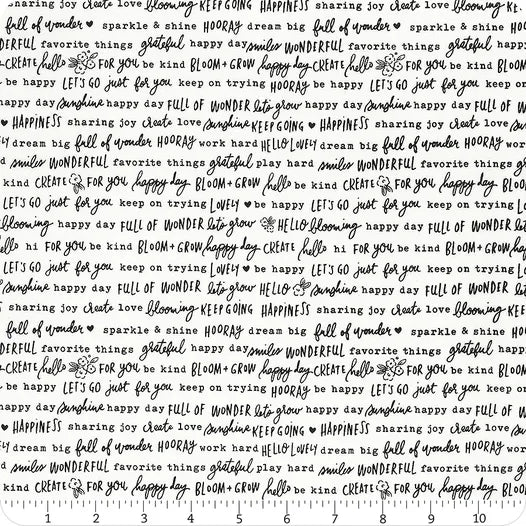 sharing joy create love blooming KEEP GOING HAPPINESS sharing joy create love blooming KE
full of wonder ♥ sparkle & shine HOORAY dream big full of wonder ♥ sparkle & shine HOO
DERFUL favorite things grateful happy day smiles WONDERFUL favorite things grateful happ
CREATE hello FOR YOU be kind BLOOM + GROW happy day CREATE hello FOR YOU be kind BLOOM
be happy LET'S GO just for you keep on trying HOORAY be happy LET'S GO just for you keep on
happy day sunshine happy day FULL OF WONDER let's grow happy day sunshine happy day FULL OF W
♥ HAPPINESS sharing joy create love sunshine KEEP GOING ♥ HAPPINESS sharing joy create love su
LY dream big full of wonder HOORAY work hard HELLO LOVELY dream big full of wonder HOORAY work
d smiles WONDERFUL favorite things grateful play hard smiles WONDERFUL favorite things g
kind CREATE FOR YOU happy day BLOOM + GROW hello be kind CREATE FOR YOU happy day BLOO
LET'S GO just for you keep on trying LOVELY ♥ be happy LET'S GO just for you keep on trying LO
blooming happy day FULL OF WONDER let's grow HELLO blooming happy day FULL OF WONDER let's g
ello hi FOR YOU be kind BLOOM + GROW happy day CREATE hello hi FOR YOU be kind BLOOM + GROW ha
LET'S GO just for you keep on trying LOVELY ♥ be happy LET'S GO just for you keep on trying LO
sunshine happy day FULL OF WONDER let's grow HELLO sunshine happy day FULL OF WONDER let's g
sharing joy create love blooming KEEP GOING HAPPINESS sharing joy create love blooming KEE
full of wonder ♥ sparkle & shine HOORAY dream big full of wonder ♥ sparkle & shine HOO
DERFUL favorite things grateful happy day smiles WONDERFUL favorite things grateful happ
CREATE hello FOR YOU be kind BLOOM + GROW happy day CREATE hello FOR YOU be kind BLOOM
be happy LET'S GO just for you keep on trying HOORAY be happy LET'S GO just for you keep on
happy day sunshine happy day FULL OF WONDER let's grow happy day sunshine happy day FULL OF W
♥ HAPPINESS sharing joy create love sunshine KEEP GOING ♥ HAPPINESS sharing joy create love su
LY dream big full of wonder HOORAY work hard HELLO LOVELY dream big full of wonder HOORAY work
d smiles WONDERFUL favorite things grateful play hard smiles WONDERFUL favorite things g
kind CREATE FOR YOU happy day BLOOM + GROW hello be kind CREATE FOR YOU happy day BLOO
1 2 3 4 5 6 7 8 9 10